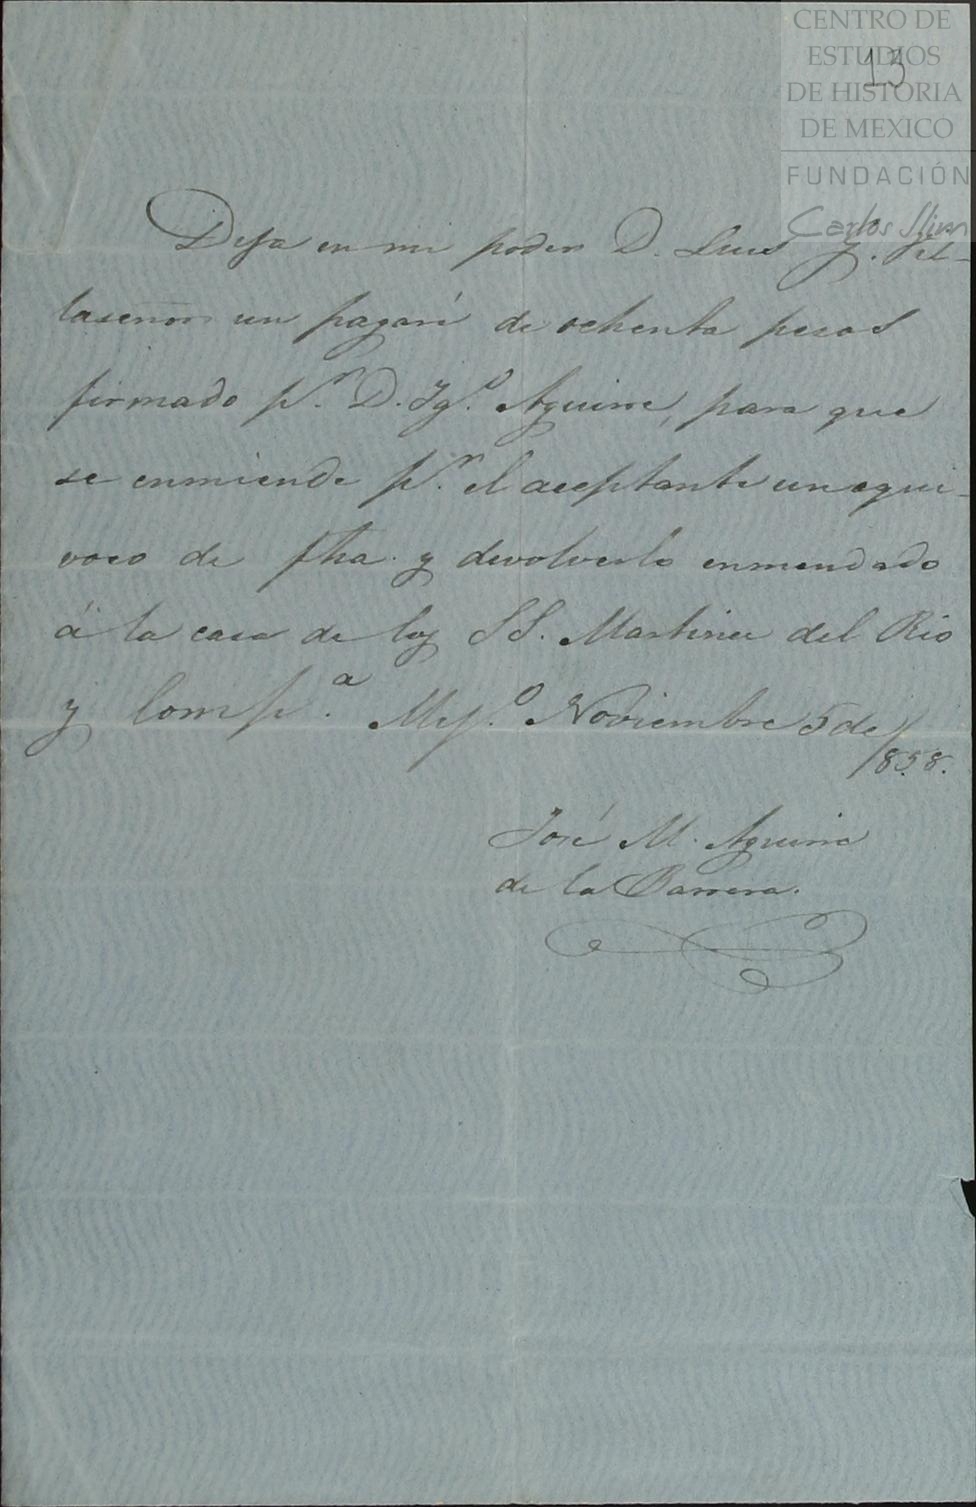 CENTRO DE
ESTUDIOS
DE HISTORIA
DE MEXICO
FUNDACIÓN
Carlos Slim
13
Deja en mi poder D. Luis J. Vi-
llaseñor un pagaré de ochenta pesos
firmado pr. D. Igo. Aguirre, para que
se enmiende pr. el aceptante un equi-
voco de fha. y devolverlo enmendado
á la casa de los SS. Martinez del Rio
y Compa. Mejo. Noviembre 5 de
1858.
José M. Aguirre
de la Barrera.